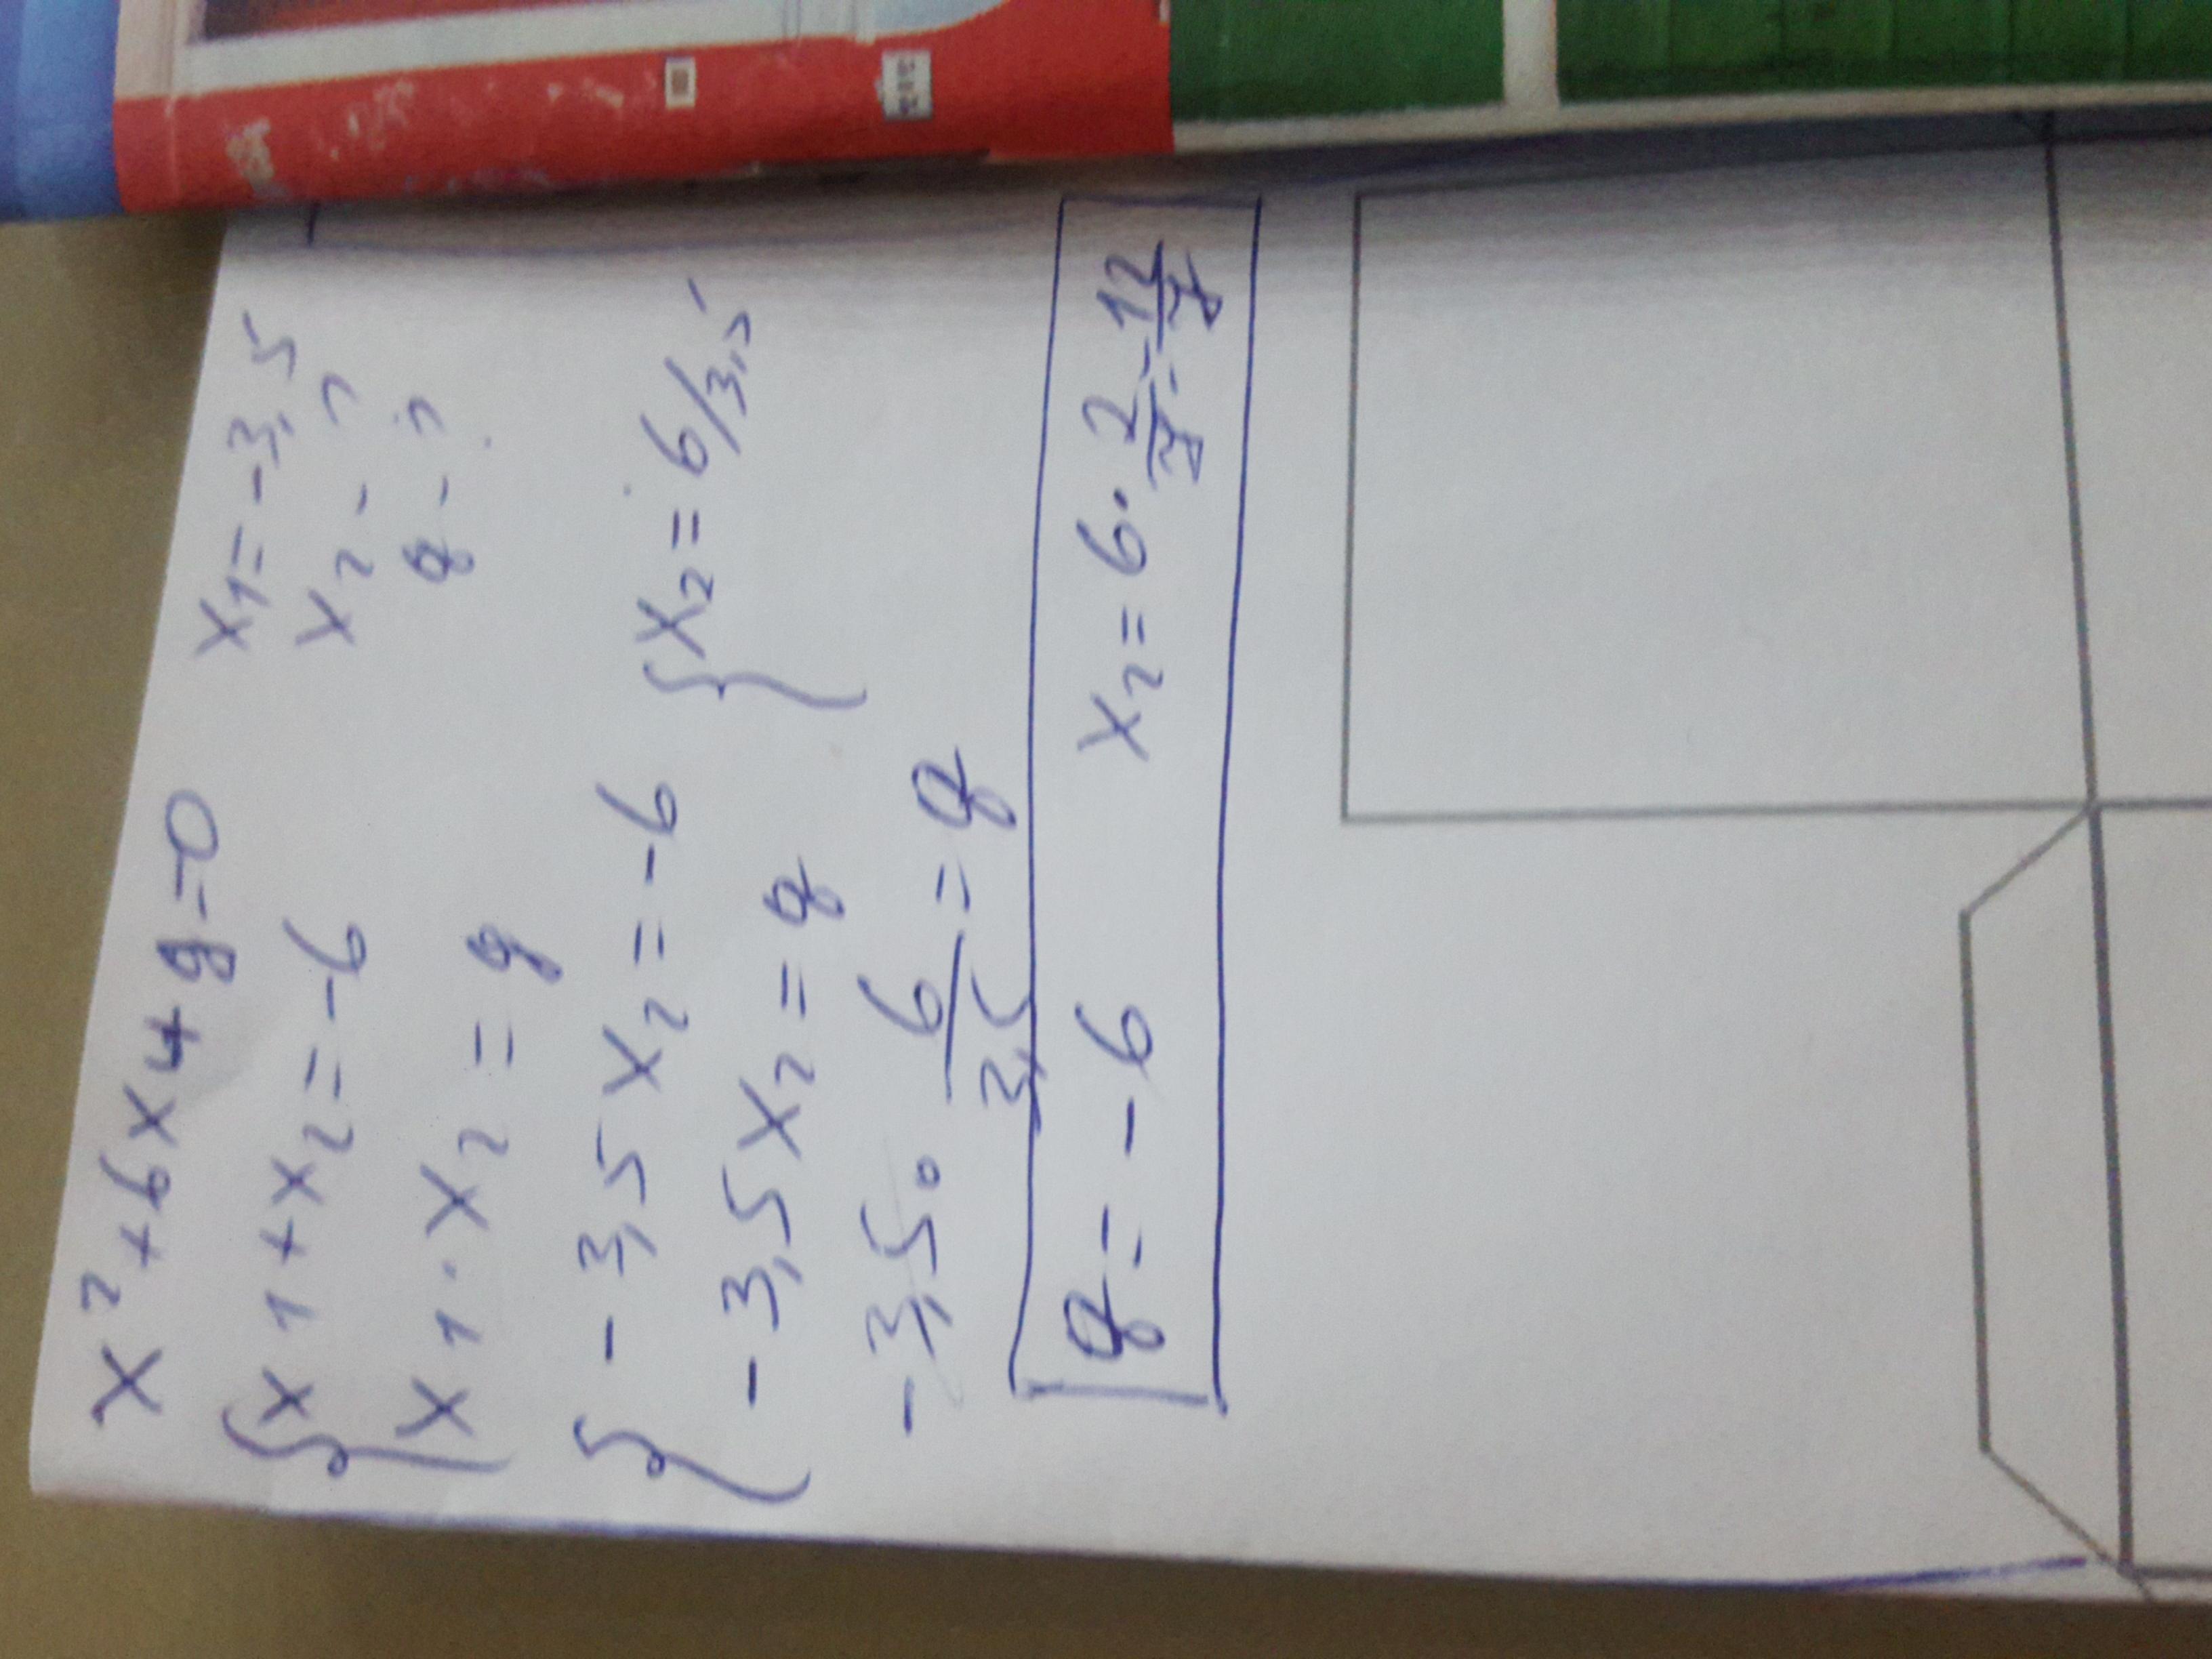 x² + 6x + q = 0
x1 = -3,5
x2 - ?
q - ?
{ x1 + x2 = -6
x1 · x2 = q
{ -3,5 x2 = -6
-3,5 x2 = q
{ x2 = 6/3,5
-3,5 · 6/3,5 = q
q = -6 x2 = 6 · 2/7 = 12/7